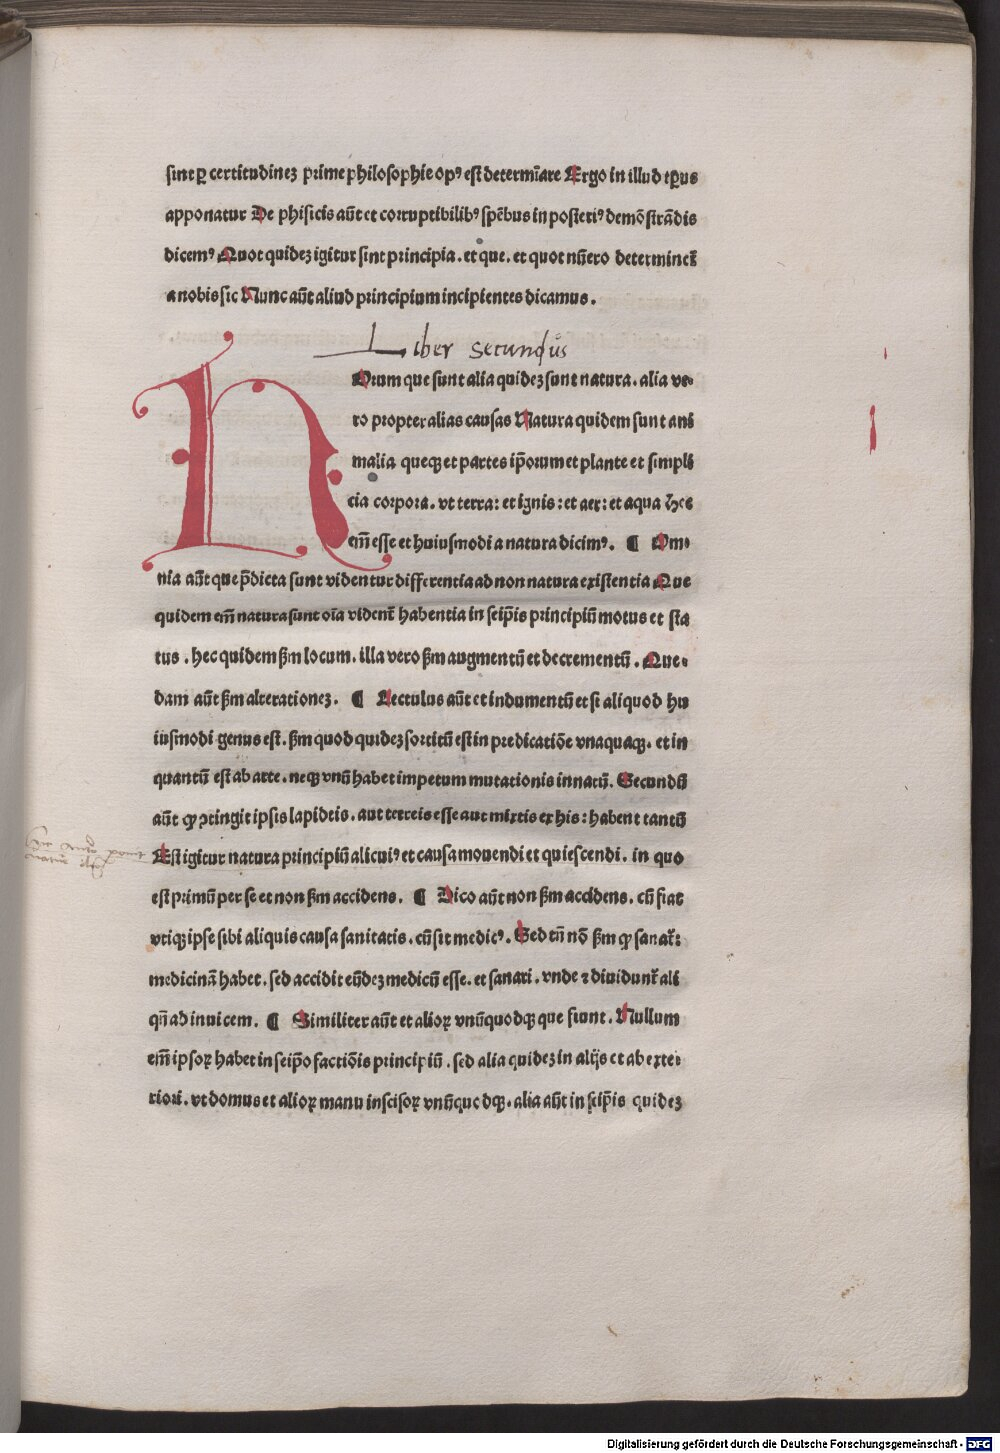 sint ꝑ certitudineꝫ prime philosophie opꝰ est determīare Ergo in illud tp̄us
apponatur De phisicis aūt et corruptibilibꝰ spēbus in posteriꝰ demōstrādis
dicemꝰ Quot quideꝫ igitur sint principia. et que. et quot nūero determinet̄
a nobis sic Nunc aūt aliud principium incipientes dicamus.
Liber secundus
N
Orum que sunt alia quideꝫ sunt natura. alia ve⸗
ro propter alias causas Natura quidem sunt ani
malia queqꝫ et partes ip̄orum et plante et simpli
cia corpora. vt terra: et ignis: et aer: et aqua hec
em̄ esse et huiusmodi a natura dicimꝰ. ¶ Om⸗
nia aūt que p̄dicta sunt videntur differentia ad non natura existentia Que
quidem em̄ natura sunt oīa vident̄ habentia in seip̄is principiū motus et sta
tus. hec quidem ẜm locum. illa vero ẜm augmentū et decrementū. Que⸗
dam aūt ẜm alterationeꝫ. ¶ Lectulus aūt et indumentū et si aliquod hu
iusmodi genus est. ẜm quod quideꝫ sortitū est in predicatiōe vnaquaqꝫ. et in
quantū est ab arte. neqꝫ vnū habet impetum mutationis innatū. Secundū
aūt ꝙ ꝯtingit ipsis lapideis. aut terreis esse aut mixtis ex his: habent tantū
Est igitur natura principiū alicuiꝰ et causa mouendi et quiescendi. in quo
est primū per se et non ẜm accidens. ¶ Dico aūt non ẜm accidens. cū fiat
vtiqꝫ ipse sibi aliquis causa sanitatis. cū sit medicꝰ. Sed tn̄ nō ẜm ꝙ sanat̄:
medicinā habet. sed accidit eūdeꝫ medicū esse. et sanari. vnde ⁊ diuidunt̄ ali
qn̄ ad inuicem. ¶ Similiter aūt et alioꝝ vnūquodqꝫ que fiunt. Nullum
em̄ ipsoꝝ habet in seip̄o factiōis principiū. sed alia quideꝫ in alijs et ab exte⸗
riori. vt domus et alioꝝ manu inscisoꝝ vnūquodqꝫ. alia aūt in seip̄is quideꝫ
Digitalisierung gefördert durch die Deutsche Forschungsgemeinschaft - DFG